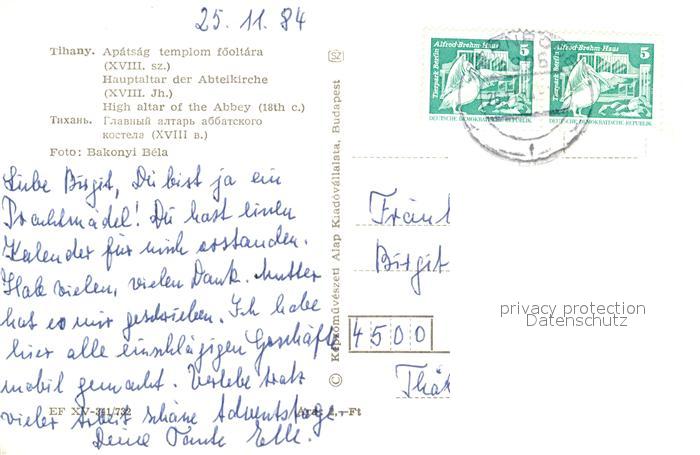 25.11.84
Tihany. Apátság templom főoltára
(XVIII. sz.)
Hauptaltar der Abteikirche
(XVIII. Jh.)
High altar of the Abbey (18th c.)
Тихань. Главный алтарь аббатского
костела (XVIII в.)
Foto: Bakonyi Béla
Liebe Birgit, Du bist ja ein
Prachtmädel! Du hast einen
Kalender für mich erstanden.
Hab vielen, vielen Dank. Mutter
hat es mir geschrieben. Ich habe
hier alle einschlägigen Geschäfte
mobil gemacht. Verlebe trotz
vieler Arbeit schöne Adventstage.
Deine Tante
EF XV-341/732 Ára: 2,-Ft
© Képzőművészeti Alap Kiadóvállalata, Budapest
52
Tierpark Berlin
Alfred-Brehm-Haus 5
DEUTSCHE DEMOKRATISCHE REPUBLIK
Tierpark Berlin
Alfred-Brehm-Haus 5
DEUTSCHE DEMOKRATISCHE REPUBLIK
Birgit
4500
privacy protection
Datenschutz